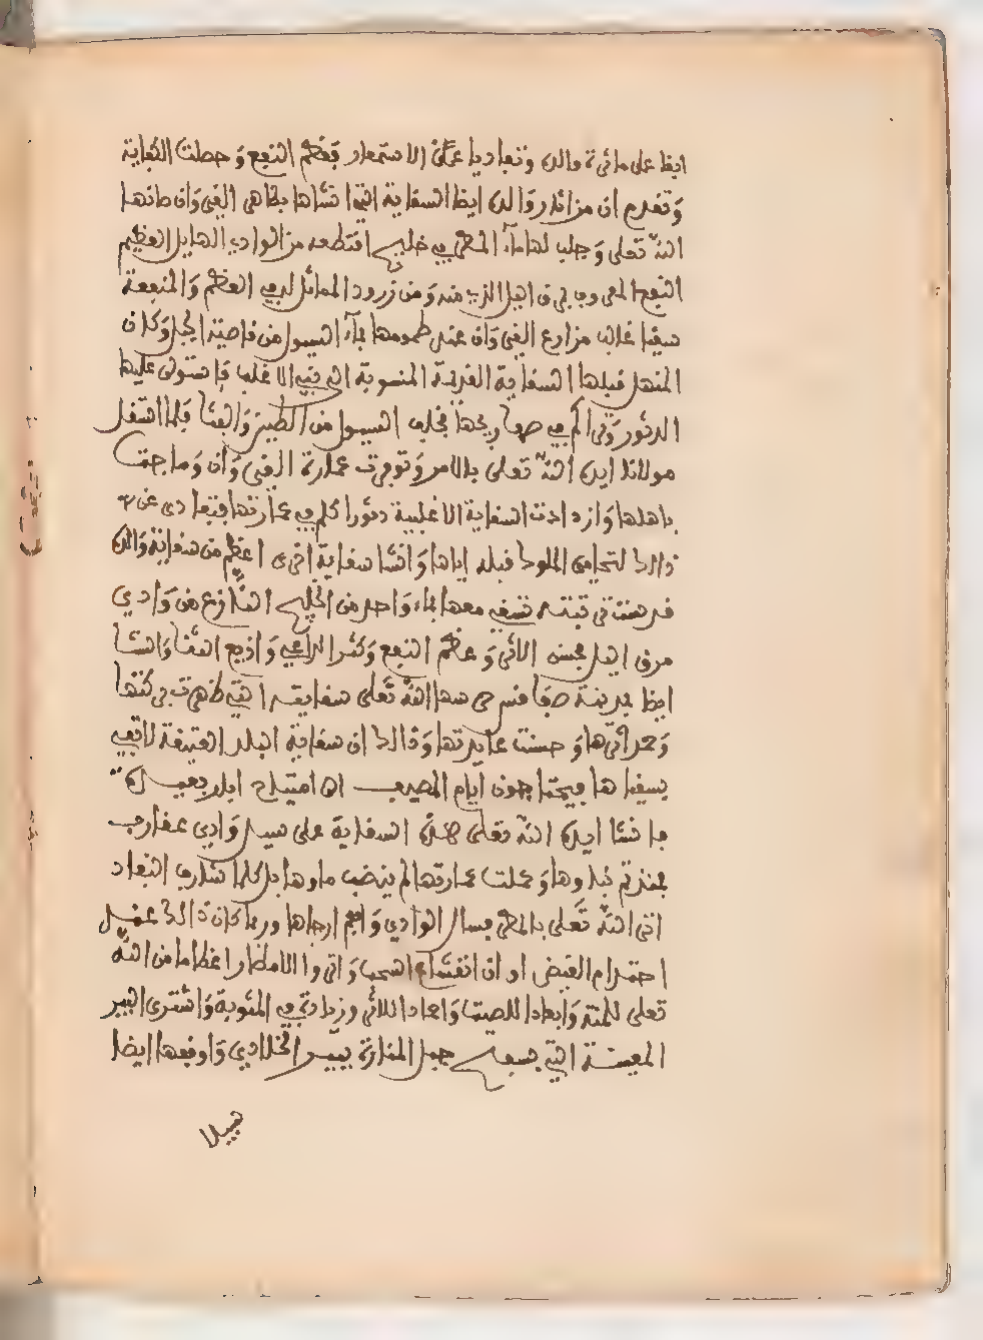 ابقا على ماثرة والده وتفاديا عكن الاستمرار فعظم النفع وحصلت الكفاية
وتقدم ان من اثار والده ايضا السقاية التي انشاها بظاهر القيروان صانها
الله تعلى وجلب لها ماء المطر في خليج اقتطعه من الوادي الهايل العظيم
النفع المعروف بمرق الليل الذي منه ومن زرود المماثل له في العظم والمنفعة
سقيا غالب مزارع القيروان عند طمومها بماء السيول من ناحية الجبل وكان
المنهل قبلها السقاية القديمة المنسوبة الى بني الاغلب فاستولى عليها
الدثور وتراكم في صهاريجها مخلف السيول من الطين والغثا فلما اشتغل
مولانا ايده الله تعلى بالامر وتوفرت عمارة القيروان وماجت
باهلها وازدادت السقاية الاغلبية دثورا كلم في عمارتها فتفادى عن
ذالك لتحامي الملوك قبله اياها وانشا سقاية اخرى اعظم من سقاية والده
قد هندس قبته تسقى معها بماء واحد من الخليج النازع من وادي
مرق الليل فحسن الاثر وعظم النفع وكثر الداعي واذيع الثنا وانشا
ايضا بمدينة صفاقس حرسها الله تعلى سقايته التي ظهرت بركتها
وعم اثرها وحسنت عايدتها وذالك ان سقاية البلد العتيقة لا تفي
بسقيا ها فيحتاجون ايام المصيف الى امتياح ابار بعيدة
فانشا ايده الله تعلى هذه السقاية على سيل وادي عقارب
فمنذ تم بناوها وكملت عمارتها لم ينضب ماوها بل كلما شارف النفاد
اتى الله تعلى بالمطر فسال الوادي وافعم ارجاها وربما كان ذالك عقيل
احتدام القيض او ان انقشاع السحب واتروا الامطار اعظاما من الله
تعلى للمنة وابعادا للصيت واعدادا للاثر وزيادة في المثوبة واشترى البير
المعينة التي بسفح جبل المنارة ببير الخلادي واوقفها ايضا
سبيلا